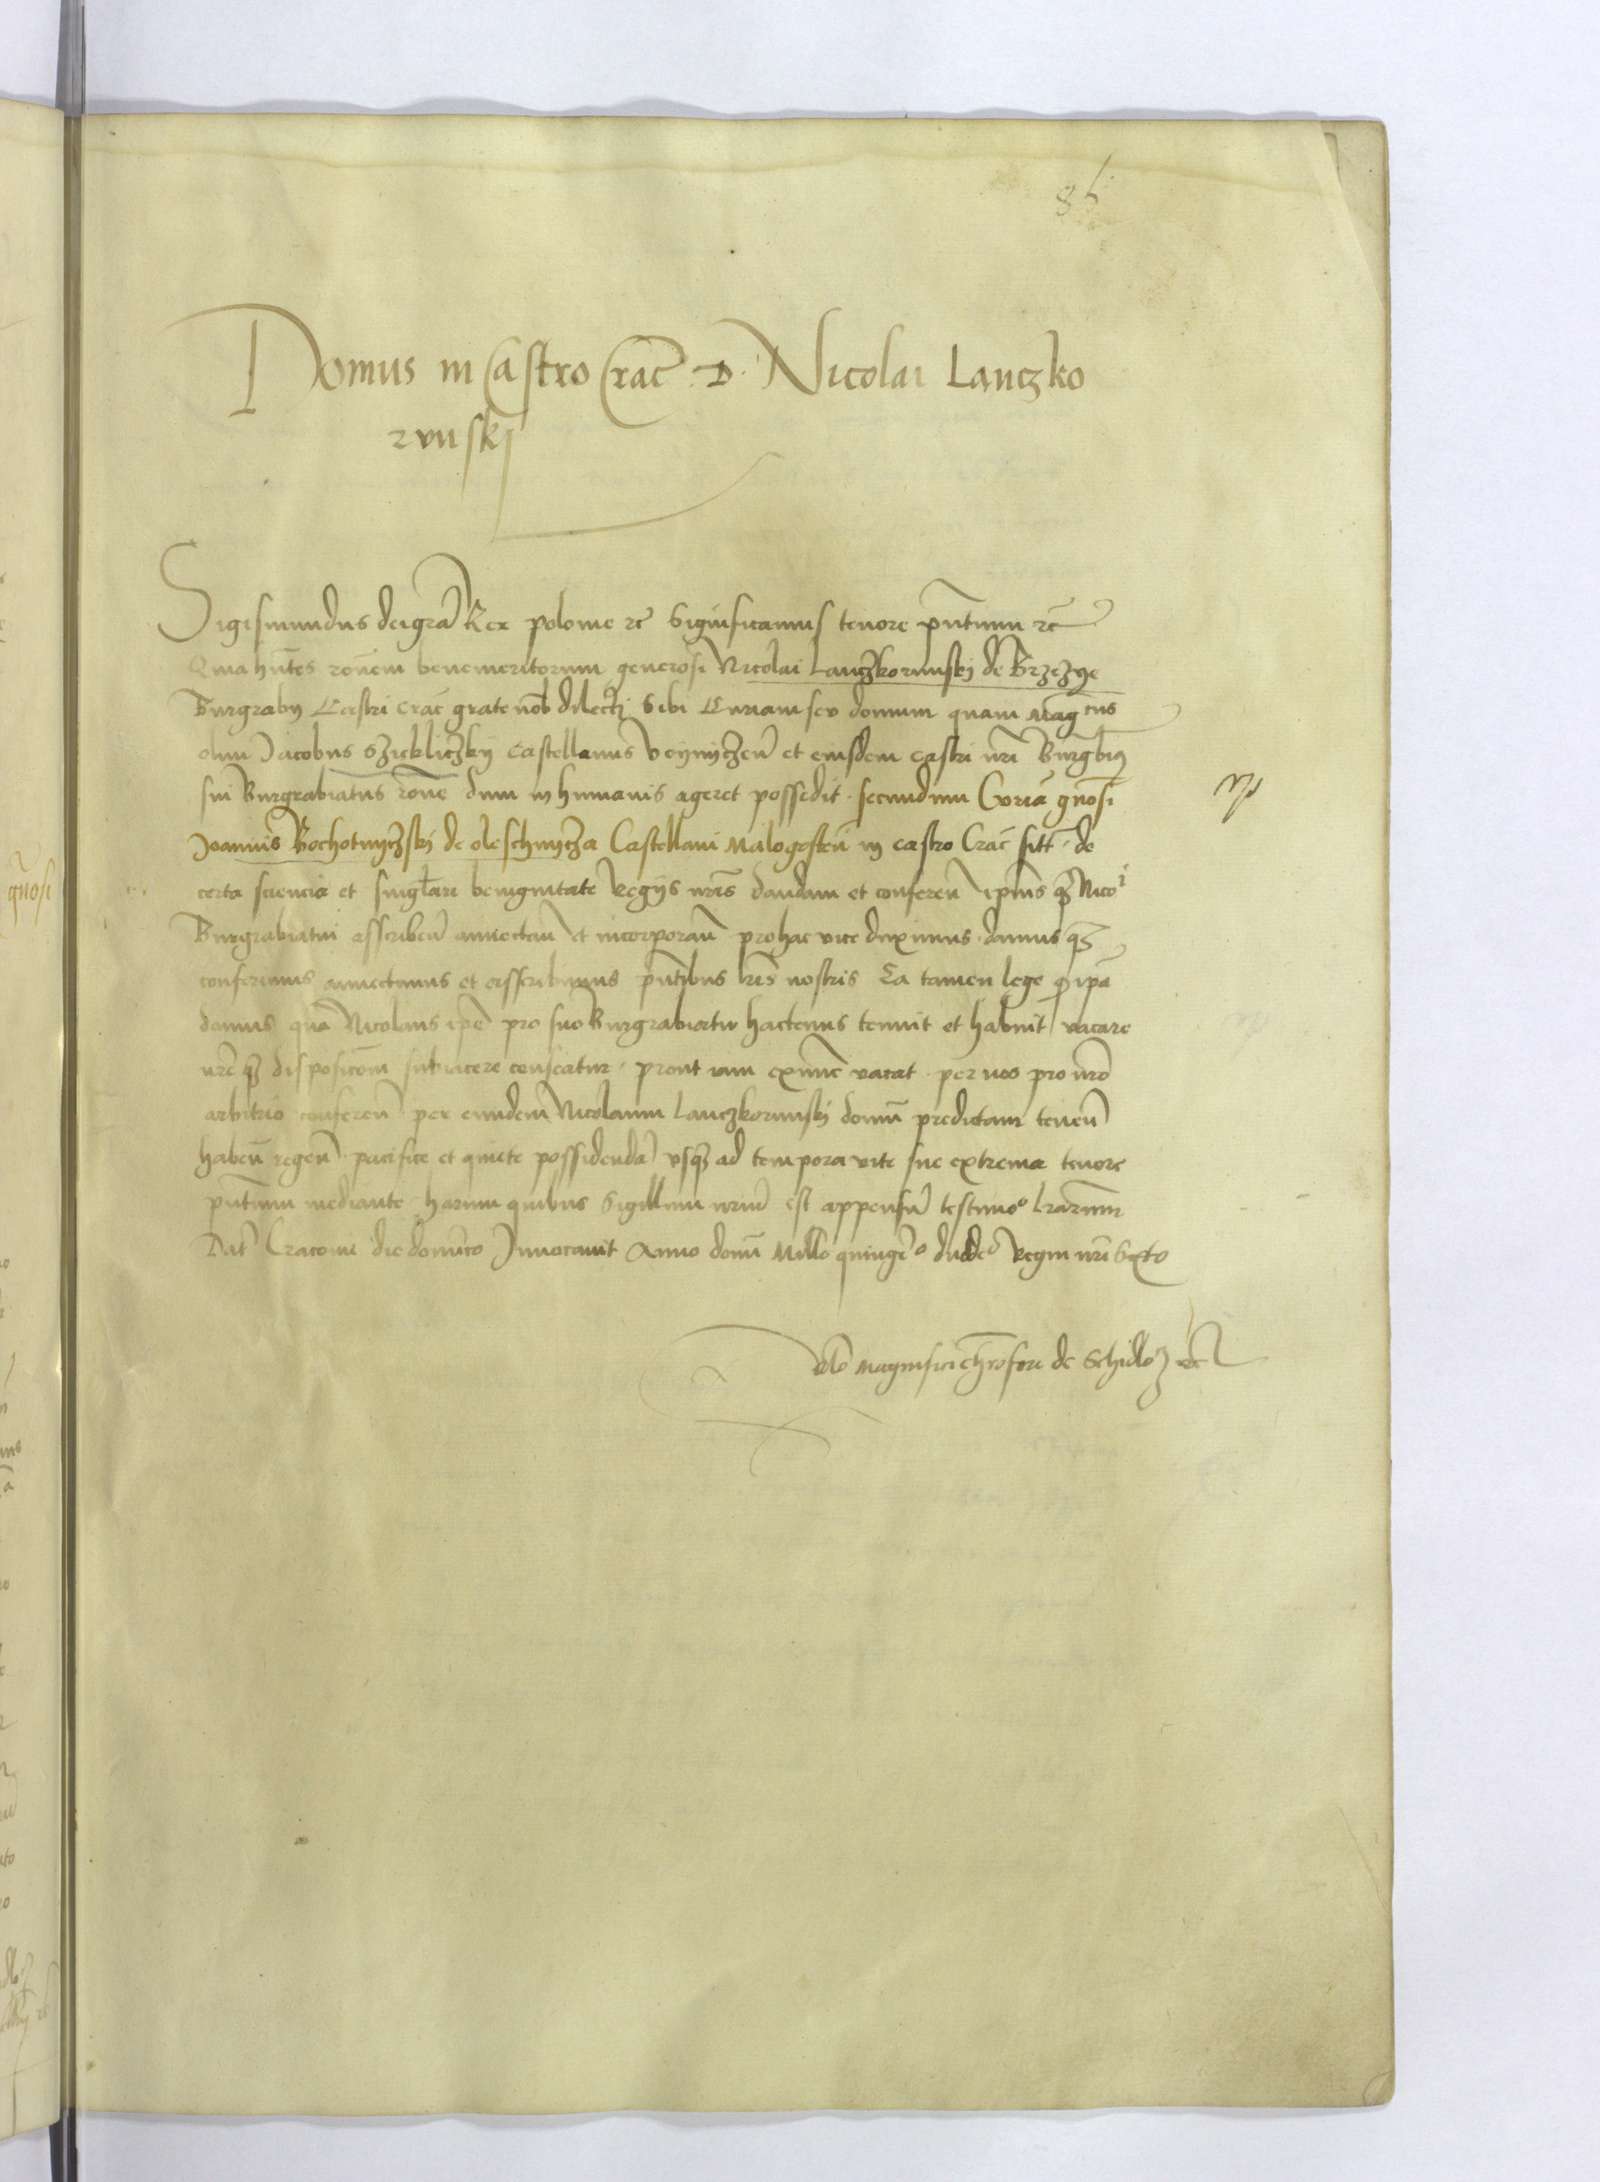 86
Domus in Castro Crac̄ D. Nicolai Lanczko
runskÿ
Sigismundus dei grā Rex polonie rc̄ Significamus tenore pn̄tium rc̄
Quia hn̄tes ronem benemeritorum generosi Nicolai Lanczkorunskÿ de Brzezye
Burgrabÿ Castri Crac̄ grate nob dilecti Sibi Curiam seu domum quam Magcus
olim Jacobus Szickliczkÿ Castellanus Voÿnÿczen̄ et eiusdem castri nr̄i Burgbiꝰ
sui Burgrabiatus rōne dum in humanis ageret possedit. secundum Curiā gnōsi
Joannis Bochotnÿczskÿ de oleschnÿcza Castellani Malogosten̄ in castro Crac̄ sitt. de
certa sciencia et singłari benignitate regijs nr̄is dandam et conferen̄ ipsius qꝫ Nicoi
Burgrabiatui asscriben̄ annecten̄ et incorporan̄ pro hac vice duximus. damus qꝫ
conferimus annectimus et asscribimus pn̄tibus lr̄is nostris Ea tamen lege ꝙ ipā
domus quā Nicolaus ip̄e pro suo Burgrabiatu hactenus tenuit et habuit vacare
nr̄e qꝫ disposicōni subiacere censeatur. prout iam exnunc vacat. per nos pro nr̄o
arbitrio conferen̄ per eundem Nicolaum Lanczkorunskÿ domū predictam tenen̄
haben̄ regen̄ pacifice et quiete possidendā vsqꝫ ad tempora vite sue extrema tenore
pn̄tium mediante. harum quibus Sigillum nr̄um est appensum̄ testimo lrārum
Dat̄ Cracovie die dominico Invocavit Anno domī Millo quingeo duodeo Regni nr̄i Sexto
Rlo Magnifici Chrōfori de Schidloꝫ vc̄